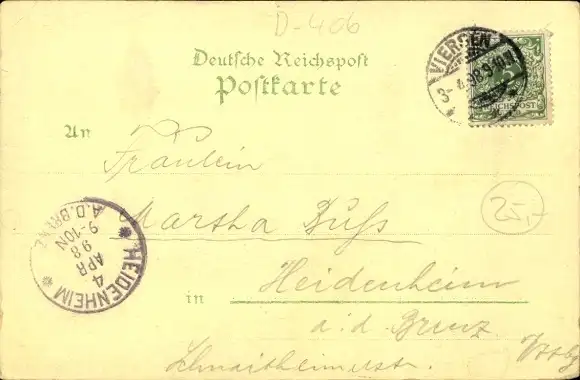 D-406
Deutsche Reichspost
Postkarte
VIERSEN
3/4.98.9-10.N.
5
REICHSPOST
An Fräulein
Martha Buss
25,-
in Heidenheim
a. d. Brenz
Schnaitheimerstr.
Wttbg
HEIDENHEIM
4
APR
98
9-10N
A.D.BRENZ